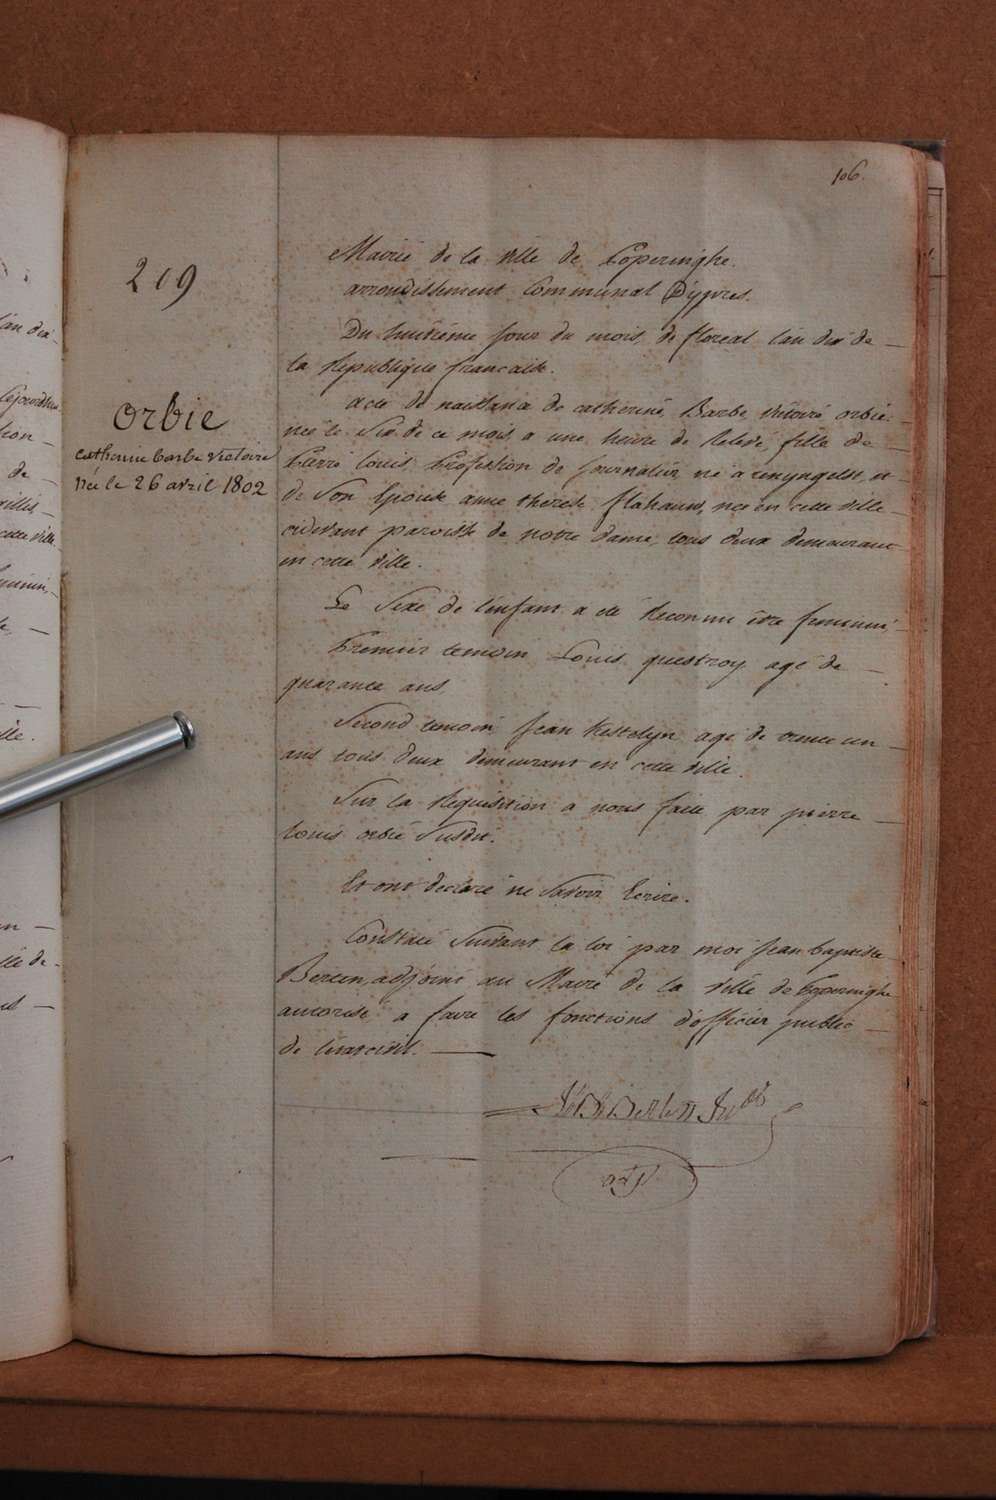 106.
219
orbie
catherine barbe victoire
née le 26 avril 1802
Mairie de la ville de Poperinghe.
arrondissement Communal D'ypres.
Du huitième jour du mois de floreal l'an dix de
la Republique francaise.
acte de naissance de catherine Barbe victoire orbie
née le Six de ce mois a une heure de Relevé, fille de
Pierre louis Profession de journalier né a renyngelst, et
de Son Epouse anne therese flahauw, née en cette ville
cidevant paroisse de notre dame, tous deux demeurant
en cette ville.
Le Sexe de l'enfant a eté Reconnu être feminin,
Premier temoin Louis questroy agé de
quarante ans,
Second temoin Jean Kestelyn agé de trente un
ans tous deux demeurant en cette ville.
Sur la Requisition a nous faite par pierre
louis orbie Susdit.
Et ont declaré ne Savoir Ecrire.
Constaté Suivant la loi par moi jean baptiste
Berten, adjoint au Maire de la ville de Poperinghe
autorisé a faire les fonctions d'officier public
de l'etat civil.
Berten
adj